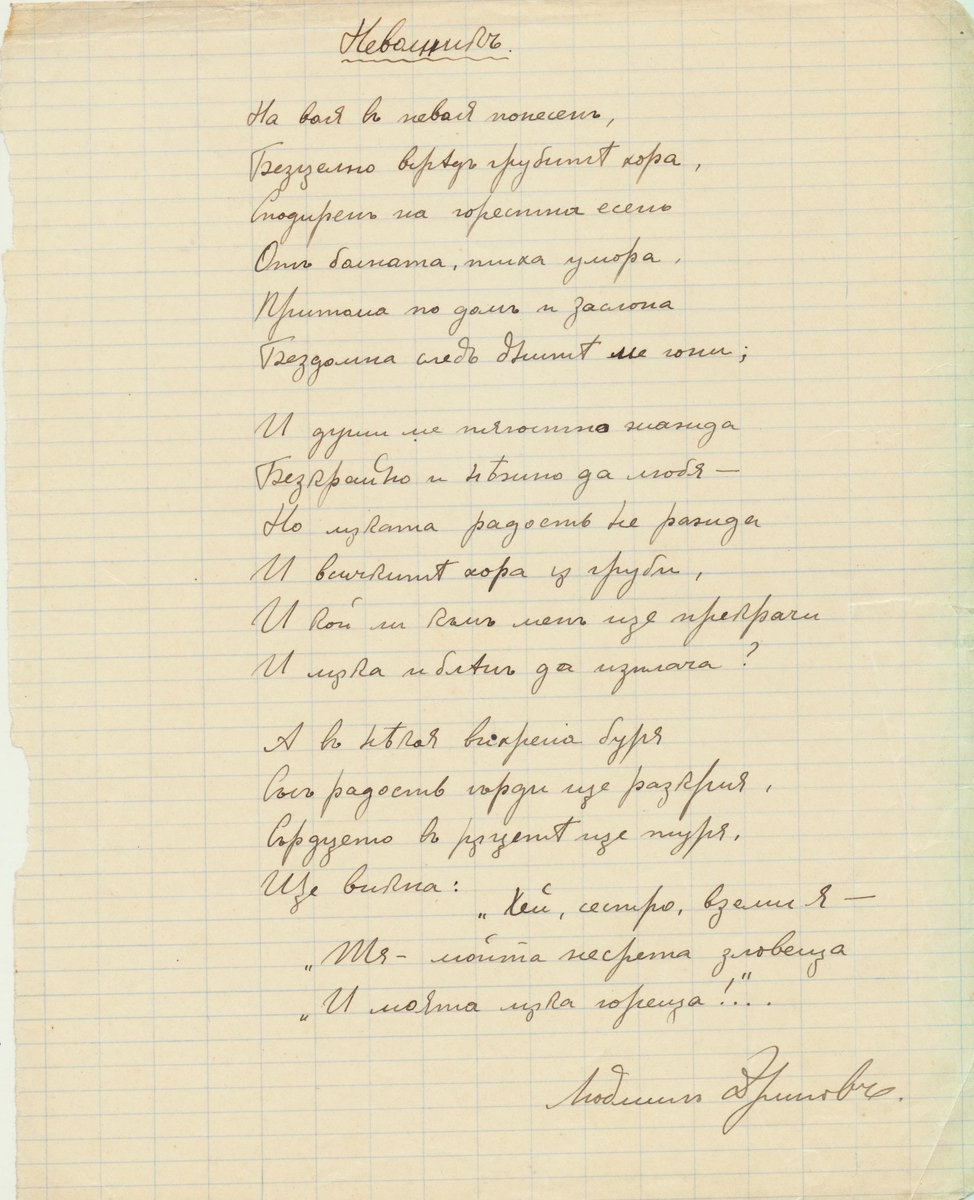 Неволникъ.
На воля въ неволя понесенъ,
Безцелно врѣдъ грубитѣ хора,
Сподиренъ на горестна есень
Отъ болната, тиха умора,
Притома по домъ и заслона
Бездомна следъ дните ме гони;
И души ме тягостна жажда
Безкрайно и нѣжно да любя —
Но мѫката радость не ражда
И всичкитѣ хора сѫ груби,
И кой ли къмъ менъ ще прекрачи
И мѫка и блѣнъ да изплача?
А въ нѣкоя вихрена буря
Съсъ радость гърди ще разкрия,
Сърдцето въ рѫцетѣ ще туря,
Ще викна:
„Хей, сестро, вземи я —
„Тя – мойта несрета зловеща
„И моята мѫка гореща!"..
Людмилъ